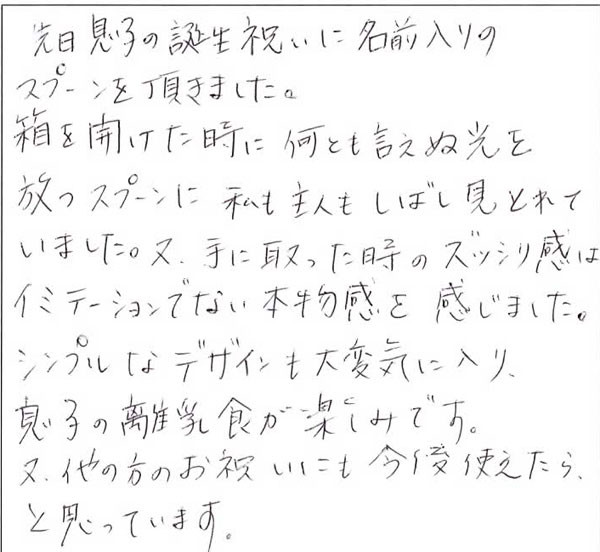 先日息子の誕生祝いに名前入りの
スプーンを頂きました。
箱を開けた時に何とも言えぬ光を
放つスプーンに私も主人もしばし見とれて
いました。又、手に取った時のズッシリ感は
イミテーションでない本物感を感じました。
シンプルなデザインも大変気に入り、
息子の離乳食が楽しみです。
又、他の方のお祝いにも今後使えたら、
と思っています。